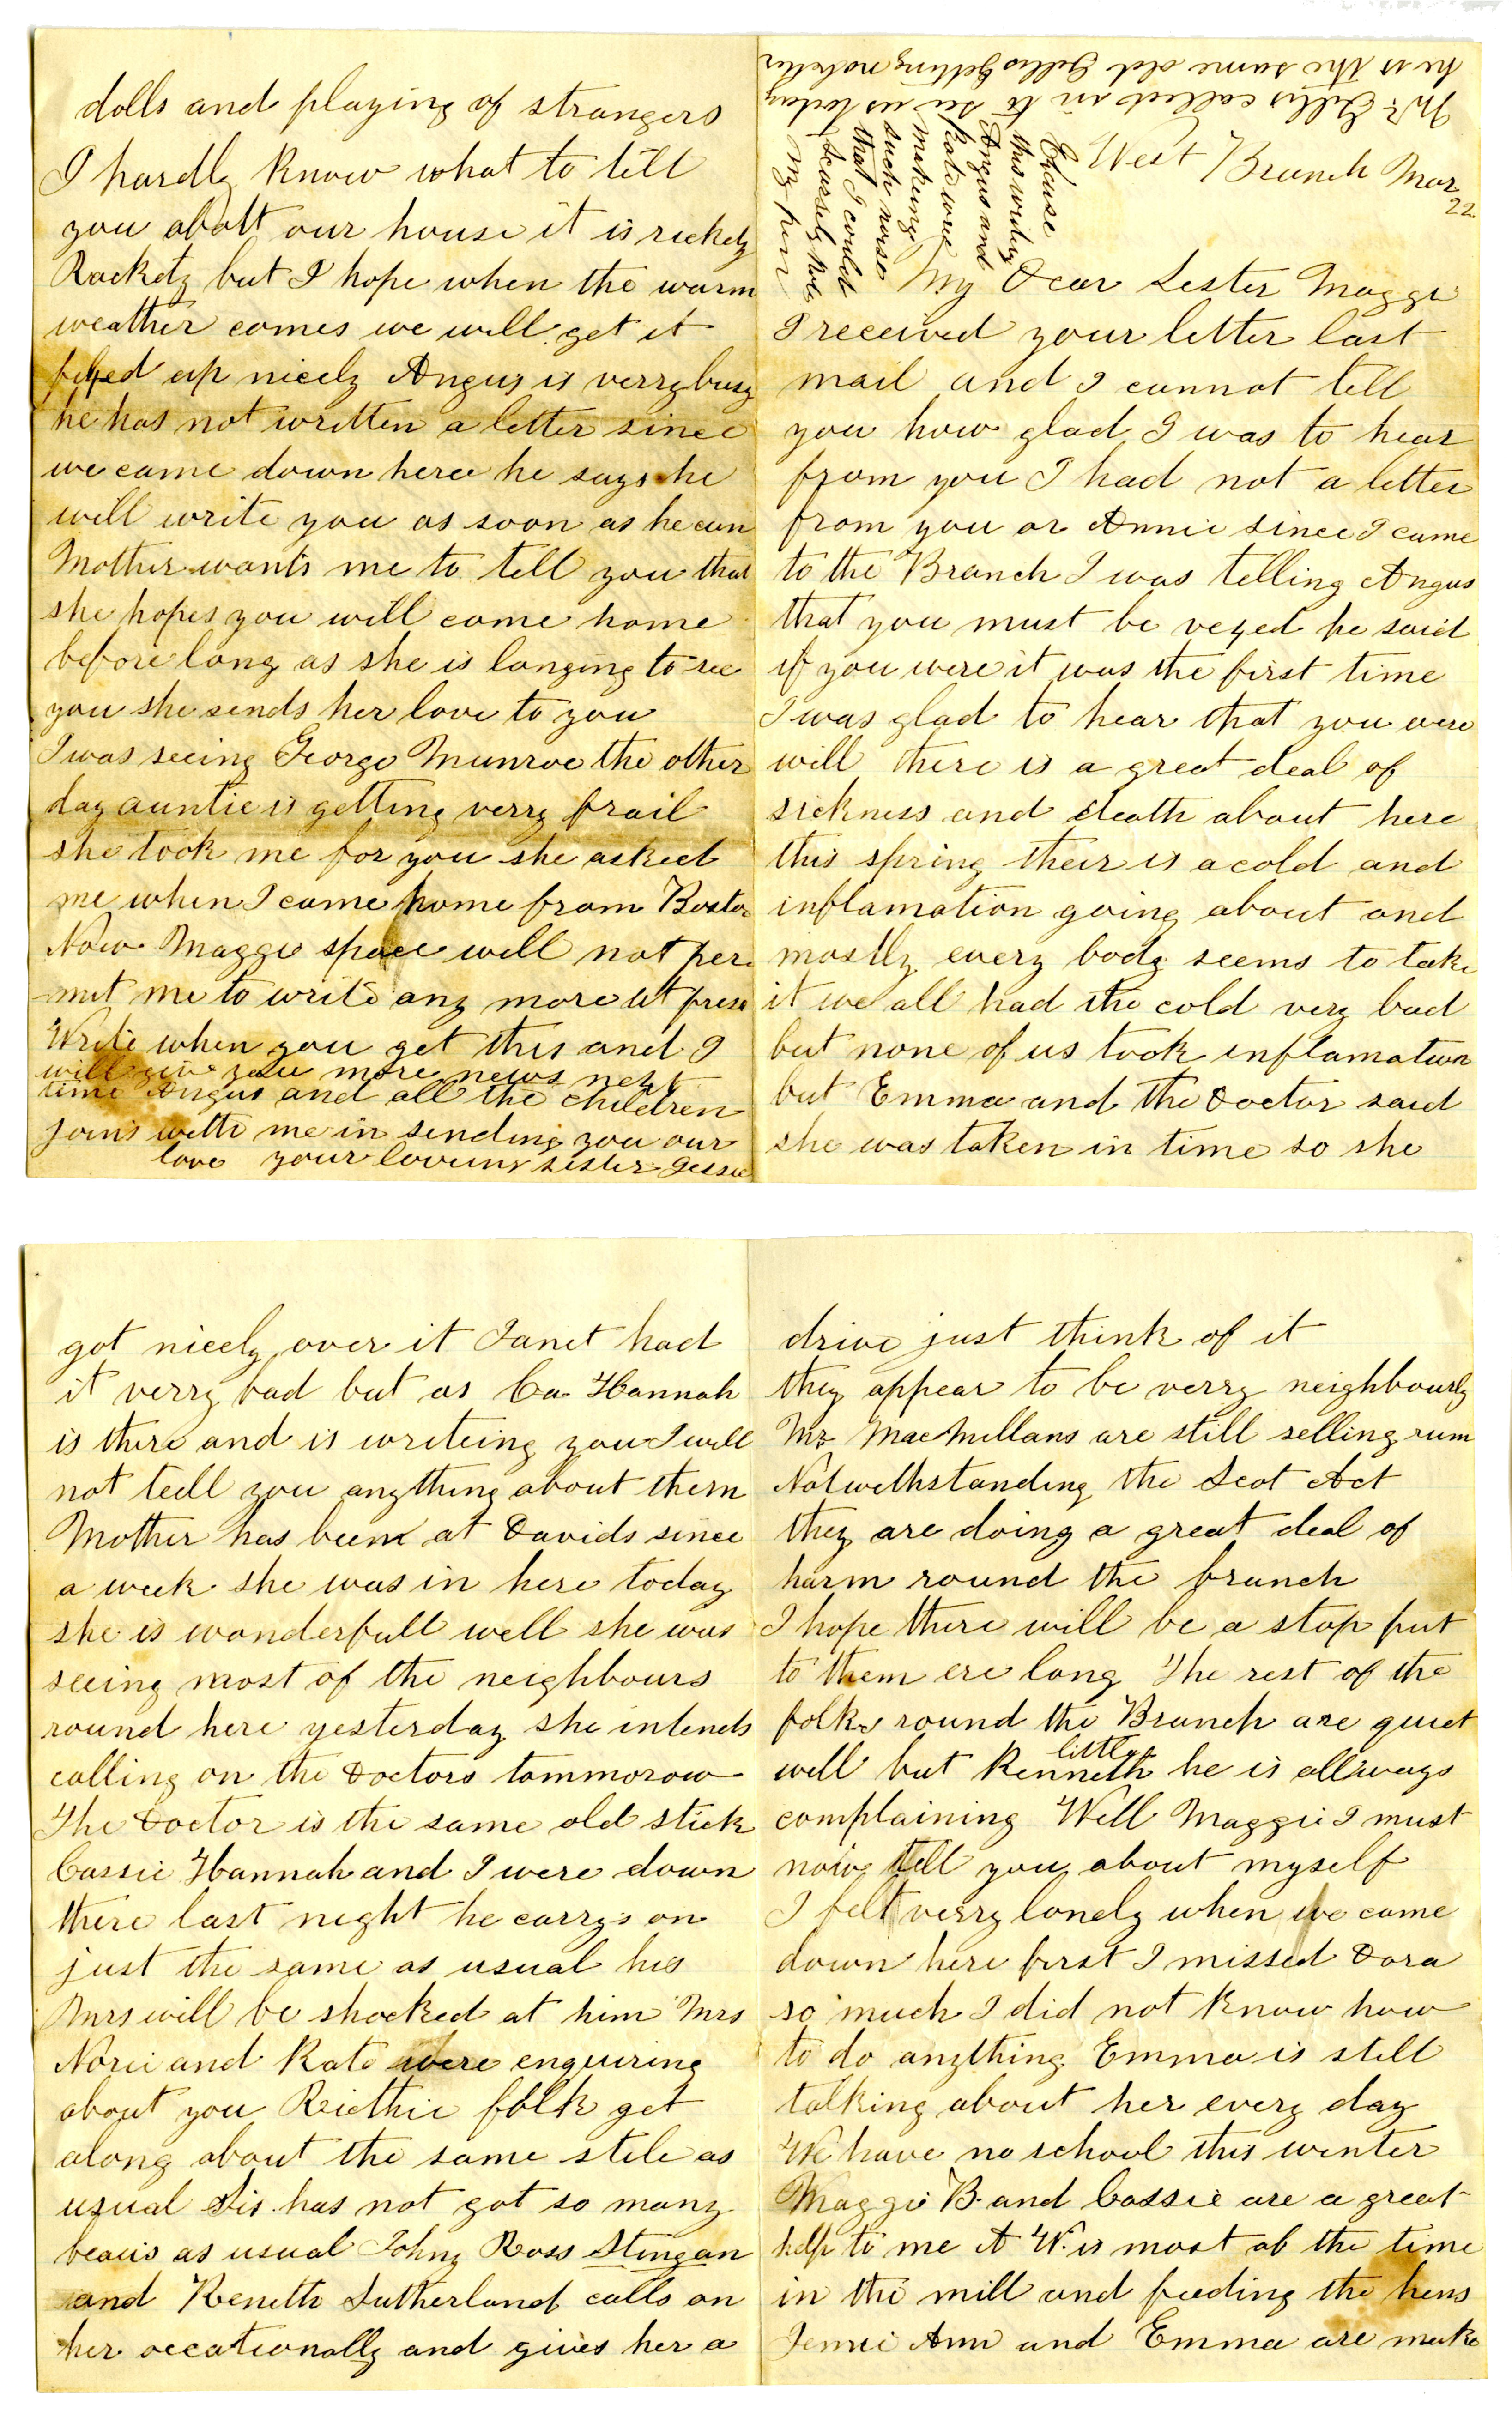 West Branch Mar
22
My Dear Sester Maggie
I received your letter last
mail and I cannot tell
you how glad I was to hear
from you I had not a letter
from you or Annie since I came
to the Branch I was telling Angus
that you must be vexed he said
if you were it was the first time
I was glad to hear that you were
will there is a great deal of
sickness and death about here
this spring their is a cold and
inflamation going about and
mostly every body seems to take
it we all had the cold very bad
but none of us took inflamation
but Emma and the Doctor said
she was taken in time so she
got nicely over it Janet had
it verry bad but as Ca Hannah
is there and is writeing you I will
not tell you anything about them
Mother has been at Davids since
a week she was in here today
she is wonderfull well she was
seeing most of the neighbours
round here yesterday she intends
calling on the Doctors tommorow
The Doctor is the same old stick
Cassie Hannah and I were down
there last night he carrys on
just the same as usual his
Mrs will be shocked at him Mrs
Norie and Kate were enquiring
about you Riethie folk get
along about the same stile as
usual Sis has not got so many
beaus as usual Johny Ross Stingan
and Keneth Sutherland calls on
her occationally and gives her a
drive just think of it
they appear to be verry neighbourly
Mr MacMillans are still selling rum
Notwithstanding the Scot Act
they are doing a great deal of
harm round the branch
I hope there will be a stop put
to them ere long The rest of the
folks round the Branch are quiet
little
well but Kenneth he is allways
complaining Well Maggie I must
now tell you about myself
I felt verry lonely when we came
down here first I missed Dora
so much I did not know how
to do anything Emma is still
talking about her every day
We have no school this winter
Maggie B and Cassie are a great
help to me A W. is most ob the time
in the mill and feeding the hens
Jennie Ann and Emma are make
dolls and playing of strangers
I hardly know what to tell
you abott our house it is rickety
Rackety but I hope when the warm
weather comes we will get it
fixed up nicely Angus is verry busy
he has not written a letter since
we came down here he says he
will write you as soon as he can
Mother wants me to tell you that
she hopes you will come home
before long as she is longing to see
you she sends her love to you
I was seeing George Munroe the other
day auntie is getting verry frail
she took me for you she asked
me when I came home from Boston
Now Maggie space will not per
mit me to write any more at prese
Write when you get this and I
will give you more news next
time Angus and all the children
joins with me in sending you our
love your loveing sister Jessie
Mr Gillis called in to see us today
he is the same old Gillis getting no better
Exkuse
this writing
Angus and
Kate were
makeing
such noise
that I could
scarsely hold
my pen